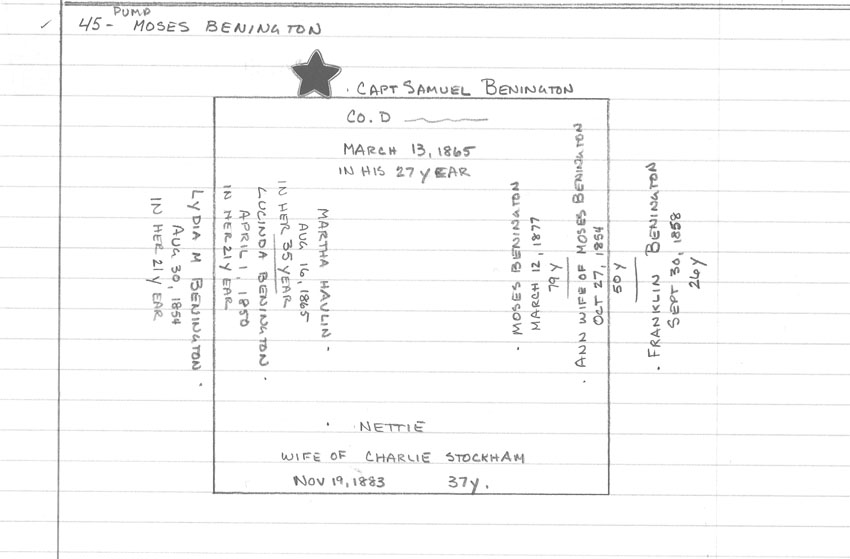 PUMP
45- MOSES BENINGTON
CAPT SAMUEL BENINGTON
CO. D
MARCH 13, 1865
IN HIS 27 YEAR
LYDIA M BENINGTON
AUG 30, 1854
IN HER 21 YEAR
LUCINDA BENINGTON
APRIL 1, 1850
IN HER 21 YEAR
MARTHA HAULIN
AUG 16, 1865
IN HER 35 YEAR
MOSES BENINGTON
MARCH 12, 1877
79 Y
ANN WIFE OF MOSES BENINGTON
OCT 27, 1854
50 Y
FRANKLIN BENINGTON
SEPT 30, 1858
26 Y
NETTIE
WIFE OF CHARLIE STOCKHAM
NOV 19, 1883 37 y.